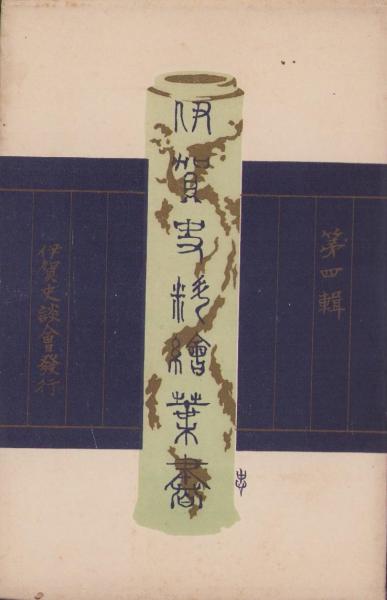 第四輯
伊賀史料繪葉書
伊賀史談會發行